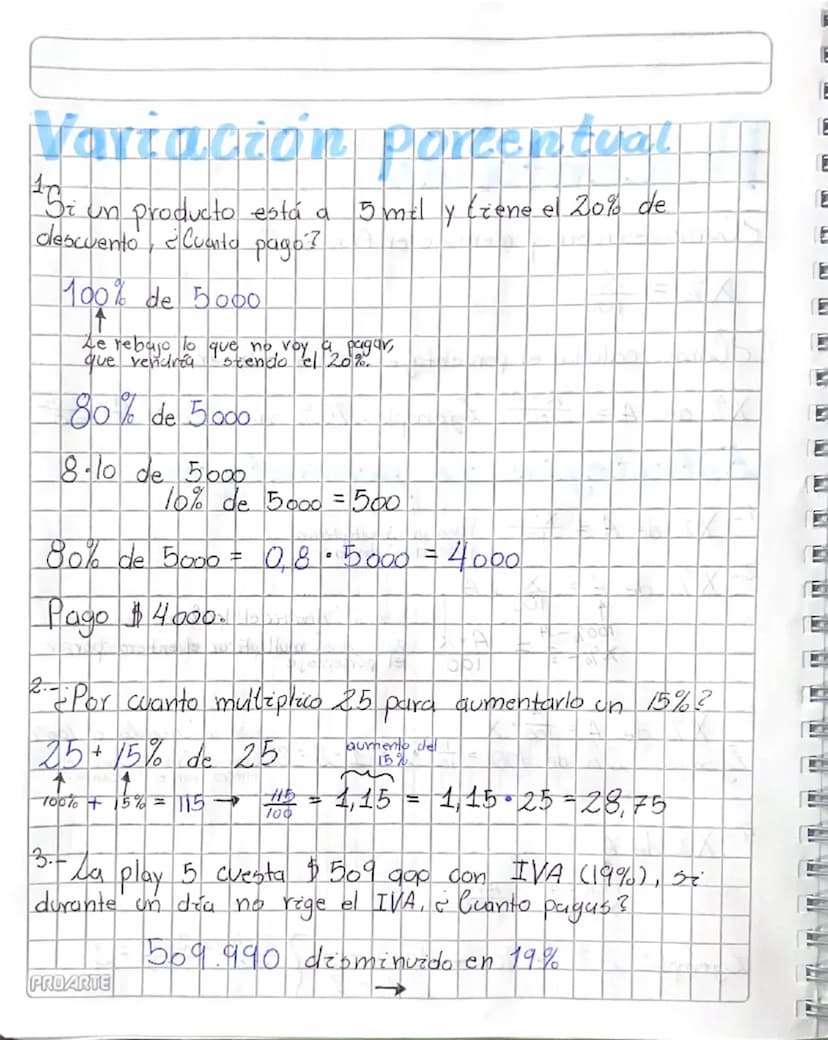 Variación porcentual
1. Si un producto está a 5 mil y tiene el 20% de
descuento, ¿Cuanto pago?
100% de 5000
Le rebajo lo que no voy a pagar,
que vendría siendo el 20%.
80% de 5000
8·10 de 5000
10% de 5000 = 500
80% de 5000 = 0,8 · 5000 = 4000
Pago $ 4000.
2.- ¿Por cuanto multiplico 25 para aumentarlo un 15%?
25 + 15% de 25
aumento del
15%
100% + 15% = 115 → 115/100 = 1,15 = 1,15 · 25 = 28,75
3.- La play 5 cuesta $ 509 990 con IVA (19%), si
durante un día no rige el IVA, ¿Cuanto pagas?
509.990 disminuido en 19%
→
PROARTE